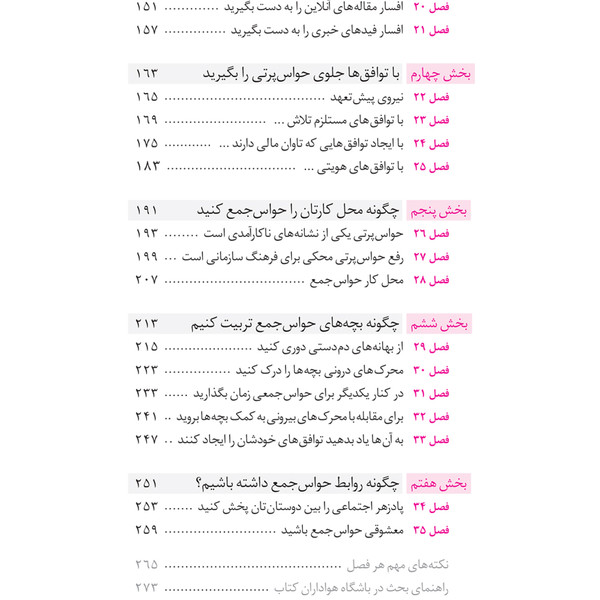 فصل ۲۰ افسار مقاله‌های آنلاین را به دست بگیرید ............. ۱۵۱
فصل ۲۱ افسار فیدهای خبری را به دست بگیرید ............... ۱۵۷
بخش چهارم با توافق‌ها جلوی حواس‌پرتی را بگیرید ۱۶۳
فصل ۲۲ نیروی پیش‌تعهد ....................................... ۱۶۵
فصل ۲۳ با توافق‌های مستلزم تلاش ... ......................... ۱۶۹
فصل ۲۴ با ایجاد توافق‌هایی که تاوان مالی دارند ... ............ ۱۷۵
فصل ۲۵ با توافق‌های هویتی ... ................................ ۱۸۳
بخش پنجم چگونه محل کارتان را حواس‌جمع کنید ۱۹۱
فصل ۲۶ حواس‌پرتی یکی از نشانه‌های ناکارآمدی است ........ ۱۹۳
فصل ۲۷ رفع حواس‌پرتی محکی برای فرهنگ سازمانی است ... ۱۹۹
فصل ۲۸ محل کار حواس‌جمع .................................. ۲۰۷
بخش ششم چگونه بچه‌های حواس‌جمع تربیت کنیم ۲۱۳
فصل ۲۹ از بهانه‌های دم‌دستی دوری کنید ..................... ۲۱۵
فصل ۳۰ محرک‌های درونی بچه‌ها را درک کنید ................ ۲۲۳
فصل ۳۱ در کنار یکدیگر برای حواس‌جمعی زمان بگذارید ...... ۲۳۳
فصل ۳۲ برای مقابله با محرک‌های بیرونی به کمک بچه‌ها بروید .. ۲۴۱
فصل ۳۳ به آن‌ها یاد بدهید توافق‌های خودشان را ایجاد کنند .. ۲۴۷
بخش هفتم چگونه روابط حواس‌جمع داشته باشیم؟ ۲۵۱
فصل ۳۴ پادزهر اجتماعی را بین دوستان‌تان پخش کنید ....... ۲۵۳
فصل ۳۵ معشوقی حواس‌جمع باشید ........................... ۲۵۹
نکته‌های مهم هر فصل ........................................... ۲۶۵
راهنمای بحث در باشگاه هواداران کتاب .......................... ۲۷۳